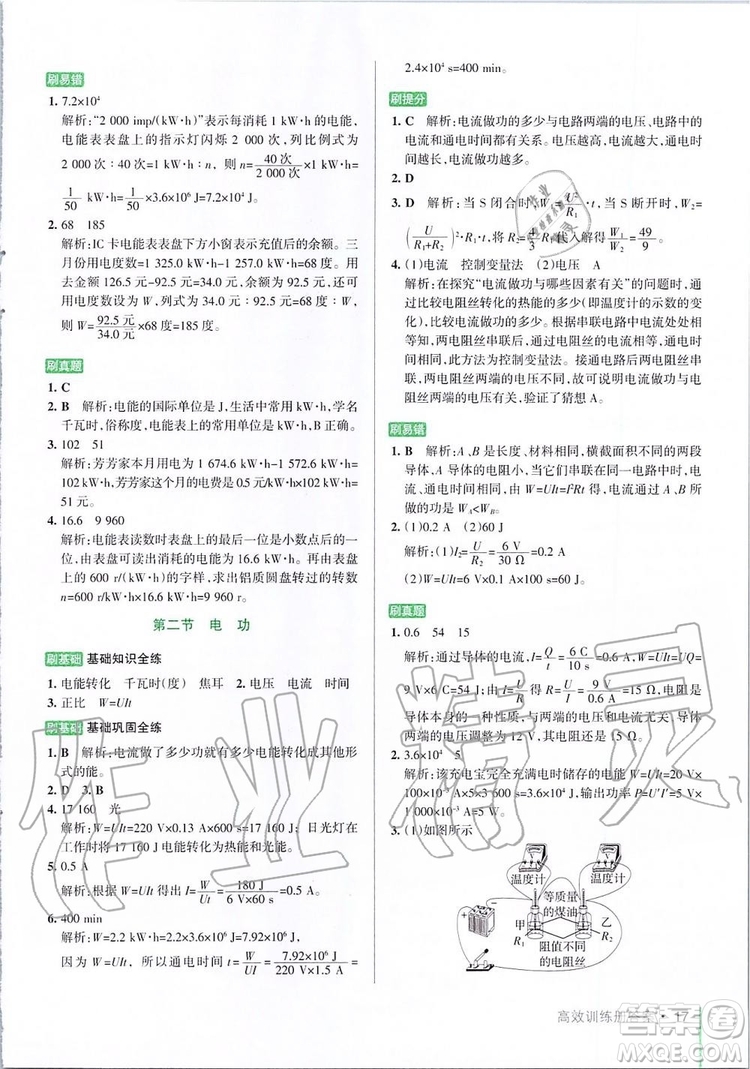 刷易错
1. 7.2×10⁴
解析:“2 000 imp/(kW·h)”表示每消耗1 kW·h的电能,
电能表表盘上的指示灯闪烁2 000次,列比例式为
2 000次:40次=1 kW·h:n,则n=40次/2 000次×1 kW·h=
1/50 kW·h=1/50×3.6×10⁶ J=7.2×10⁴ J。
2. 68 185
解析:IC卡电能表表盘下方小窗表示充值后的余额。三
月份用电度数=1 325.0 kW·h-1 257.0 kW·h=68度。用
去金额126.5元-92.5元=34.0元,余额为92.5元,还可
用电度数设为W,列式为34.0元:92.5元=68度:W,
则W=92.5元/34.0元×68度=185度。
刷真题
1. C
2. B 解析:电能的国际单位是J,生活中常用kW·h,学名
千瓦时,俗称度,电功率的单位是W,因此B正确。
3. 102 51
解析:芳芳家本月用电为1 674.6 kW·h-1 572.6 kW·h=
102 kW·h。芳芳家这个月的电费是0.5元/kW·h×102 kW·h=
51元。
4. 16.6 9 960
解析:电能表读数时表盘上的最后一位是小数点后的一
位。图中显示出消耗的电能为16.6 kW·h,再根据表盘
上的600 r/(kW·h)的字样,求出铝质圆盘转过的转数
n=600 r/kW·h×16.6 kW·h=9 960 r。
第二节 电 功
刷基础 基础知识全练
1. 电能转化 千瓦时(度) 焦耳 2. 电压 电流 时间
3. 正比 W=UIt
刷基础 基础巩固全练
1. B 解析:电流做了多少功就有多少电能转化成其他形
式的能。
2. D 3. B
4. 17 160 光
解析:W=UIt=220 V×0.13 A×600 s=17 160 J;日光灯在
工作时将17 160 J电能转化为热能和光能。
5. 0.5 A
解析:根据W=UIt得出I=W/Ut=180 J/(6 V×60 s)=0.5 A。
6. 400 min
解析:W=2.2 kW·h=2.2×3.6×10⁶ J=7.92×10⁶ J,
因为W=UIt,所以通电时间t=W/UI=7.92×10⁶ J/(220 V×1.5 A)=
2.4×10⁴ s=400 min。
刷提分
1. C 解析:电流做功的多少与电路两端的电压、电路中的
电流和通电时间都有关系。电压越高,电流越大,通电时
间越长,电流做功越多。
2. D
3. D 解析:当S闭合时,W₁=U²/R₁·t,当S断开时,W₂=
(U/(R₁+R₂))²·R₁t,将R₁/R₂=4/3代入解得W₁/W₂=49/9。
4. (1)电流 控制变量法 (2)电压 A
解析:在探究“电流做功与哪些因素有关”的实验中,通
过比较电阻丝转化的热能的多少(即温度计的示数的变
化),从而比较电流做功的多少。根据串联电路电流处处相
等知,两电阻丝串联时,探究的是在电流相等时,电流做功
与电压的关系,此方法为控制变量法。接通电路后两电阻丝串
联,两电阻丝两端的电压不同,从而得出电流做功和电
阻丝两端的电压有关,验证了猜想A。
刷易错
1. B 解析:A、B是长度、材料相同,横截面积不同的两段
导体,A导体的电阻小,当它们串联在同一电路中时,电
流通过A、B做功,且时间相同,根据W=UIt=I²Rt可知,
所做的功是Wₐ<W_B。
2. (1)0.2 A (2)60 J
解析:(1)I₂=U/R=6 V/30 Ω=0.2 A
(2)W=UIt=6 V×0.2 A×50 s=60 J。
刷真题
1. 0.6 54 15
解析:通过导体的电流,I=Q/t=6 C/10 s=0.6 A,W=UIt=UQ=
9 V×6 C=54 J;由I=U/R得R=U/I=9 V/0.6 A=15 Ω,电阻是
导体本身的一种性质,与两端的电压和电流无关,导体
两端的电压调整为12 V,其电阻仍为15 Ω。
2. 3.6×10⁴ 5
解析:该充电宝完全充满电时储存的电能W=UIt=5 V×
1000×10⁻³ A×5×3 600 s=3.6×10⁴ J,输出功率P=UI=5 V×
1000×10⁻³ A=5 W。
3. (1)如图所示
温度计
温度计
等质量
的煤油
甲
乙
R₁
R₂
阻值不同
的电阻丝
高效训练册答案·17
作业精灵
答案圈